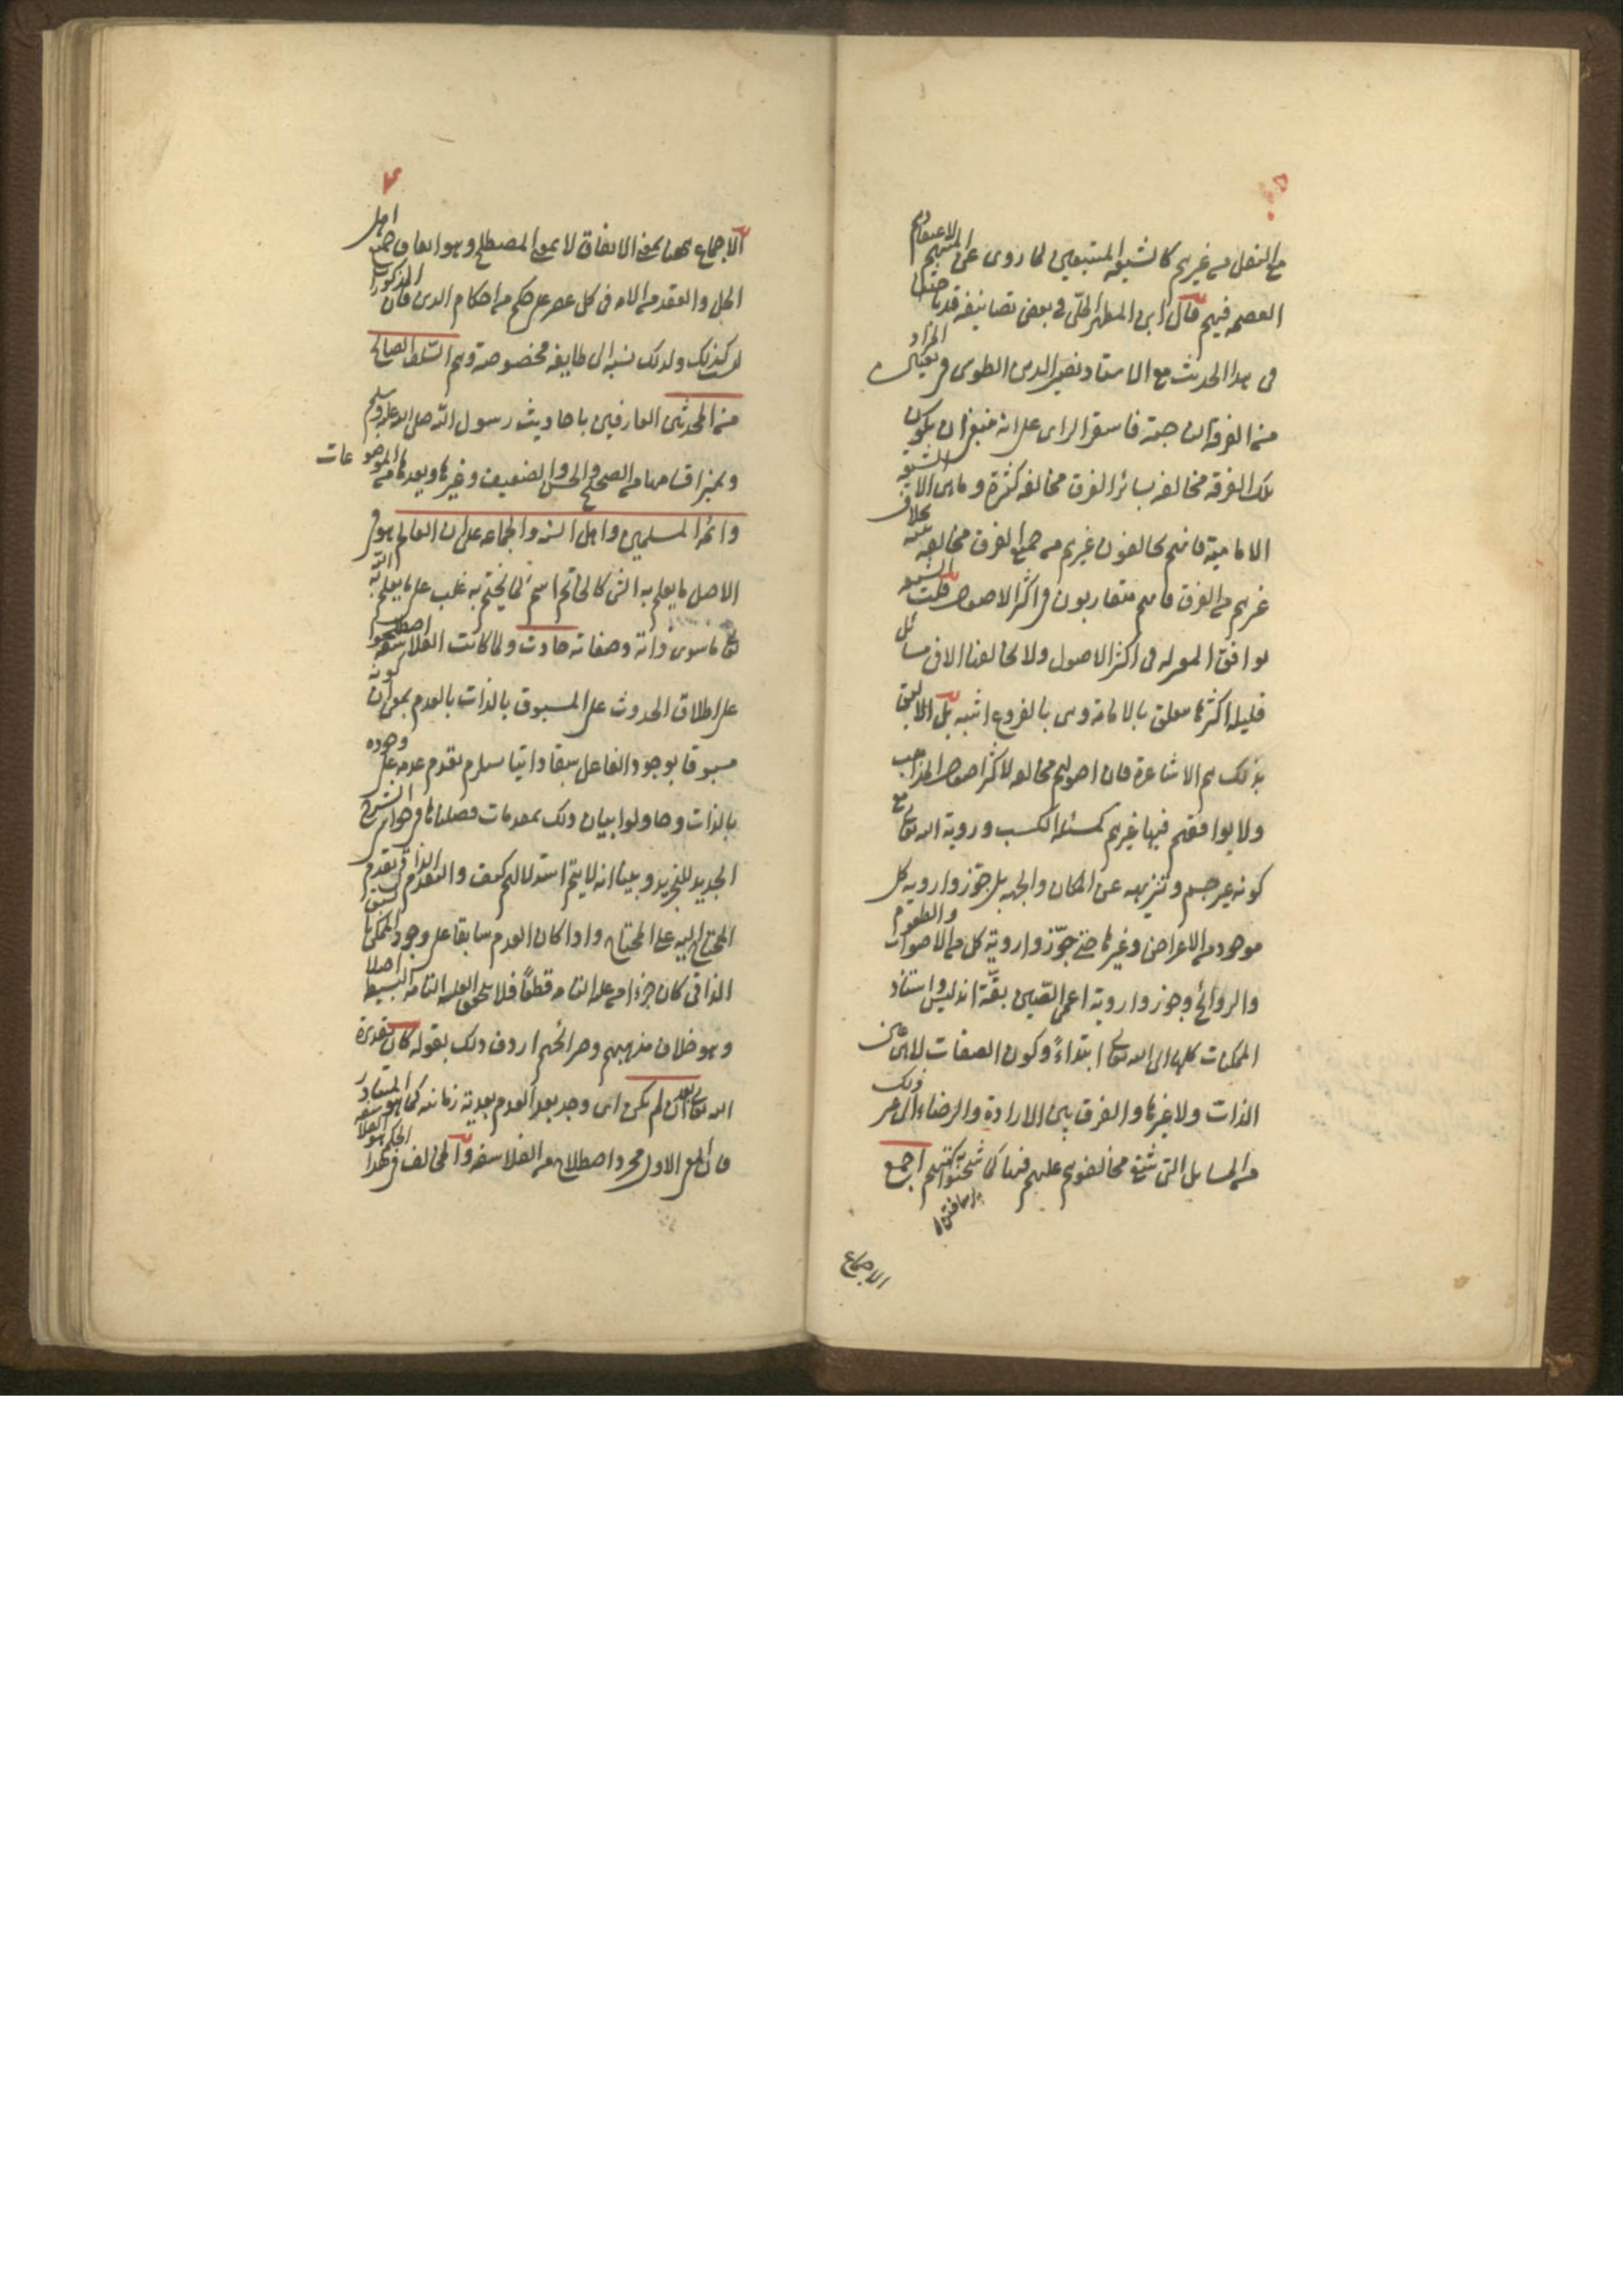 مع النقل من غيرهم كالشيعة المتبعين لما روى عن ائمتهم لاعتقادهم
العصمة فيهم قال ابن المطهر الحلى فى بعض تصانيفه قد باحثنا
فى هذا الحديث مع الاستاد نصير الدين الطوسى فى تعيين المراد
من الفرقة الناجية فاستقر الراى على انه ينبغى ان يكون
تلك الفرقة مخالفة لسائر الفرق مخالفة كثيرة وما هى الا الشيعة
الامامية فانهم يخالفون غيرهم من جميع الفرق مخالفة بينة بخلاف
غيرهم من الفرق فانهم متقاربون فى اكثر الاصول قلت الشيعة
توافق المعتزلة فى اكثر الاصول ولا تخالفها الا فى مسائل
قليلة اكثرها متعلق بالامامة وهى بالفروع اشبه بل الاليق
بذلك هم الاشاعرة فان اصولهم مخالفة لاكثر اصول المذاهب
ولا يوافقهم فيها غيرهم كمسئلة الكسب وروية الله تعالى مع
كونه غير جسم وتنزيهه عن المكان والجهة بل جوزوا روية كل
موجود من الاعراض وغيرها حتى جوّزوا روية كل من الاصوات والطعوم
والروائح وجوزوا روية اعمى الصين بقّة اندلس واستناد
الممكنات كلها الى الله تعالى ابتداءً وكون الصفات لا هى عين
الذات ولا غيرها والفرق بين الارادة والرضاء الى غير ذلك
من المسايل التى شنع مخالفوهم عليهم فيها كما شحنوا به كتبهم اجمع
الاجماع
الاجماع ههنا بمعنى الاتفاق لا بمعنى المصطلح وهو اتفاق جميع اهل
الحل والعقد من الامة فى كل عصر على حكم من احكام الدين فان المذكور
ليس كذلك ولذلك نسبه الى طايفة مخصوصة وهم السلف الصالح
من المحدثين العارفين باحاديث رسول الله صلى الله عليه وسلم
وتميز اقسامها من الصحيح والحسن والضعيف وغيرها وبعدها من الموضوعات
وائمة المسلمين واهل السنة والجماعة على ان العالم هو فى
الاصل ما يعلم به الشئ كالخاتم اسم لما يختم به غلب على ما يعلم به الله
تعالى ما سوى ذاته وصفاته حادث ولما كانت الفلاسفة اصطلحوا
على اطلاق الحدوث على المسبوق بالذات بالعدم بمعنى ان كونه
مسبوقا بوجود الفاعل سبقا ذاتيا يستلزم تقدم عدمه على وجوده
بالذات وحاولوا بيان ذلك بمقدمات فصلناها فى حواشى الشرح
الجديد للتجريد وبينا انه لا يتم استدلالهم كيف والتقدم الذاتى تقدم
المحتاج اليه على المحتاج واذا كان العدم سابقا على وجود الممكن
الذاتى كان جزءا من علته التامة قطعًا فلا يتحقق العلة التامة البسيطة اصلا
وهو خلاف مذهبهم وصرائحهم اردف ذلك بقوله كان بقدرة
الله تعالى بعد ان لم يكن اى وجد بعد العدم بعدية زمانية كما هو المتبادر
فان المعنى الاول مجرد اصطلاح من الفلاسفة والمخالف فى هذا الحكم هو الفلاسفة